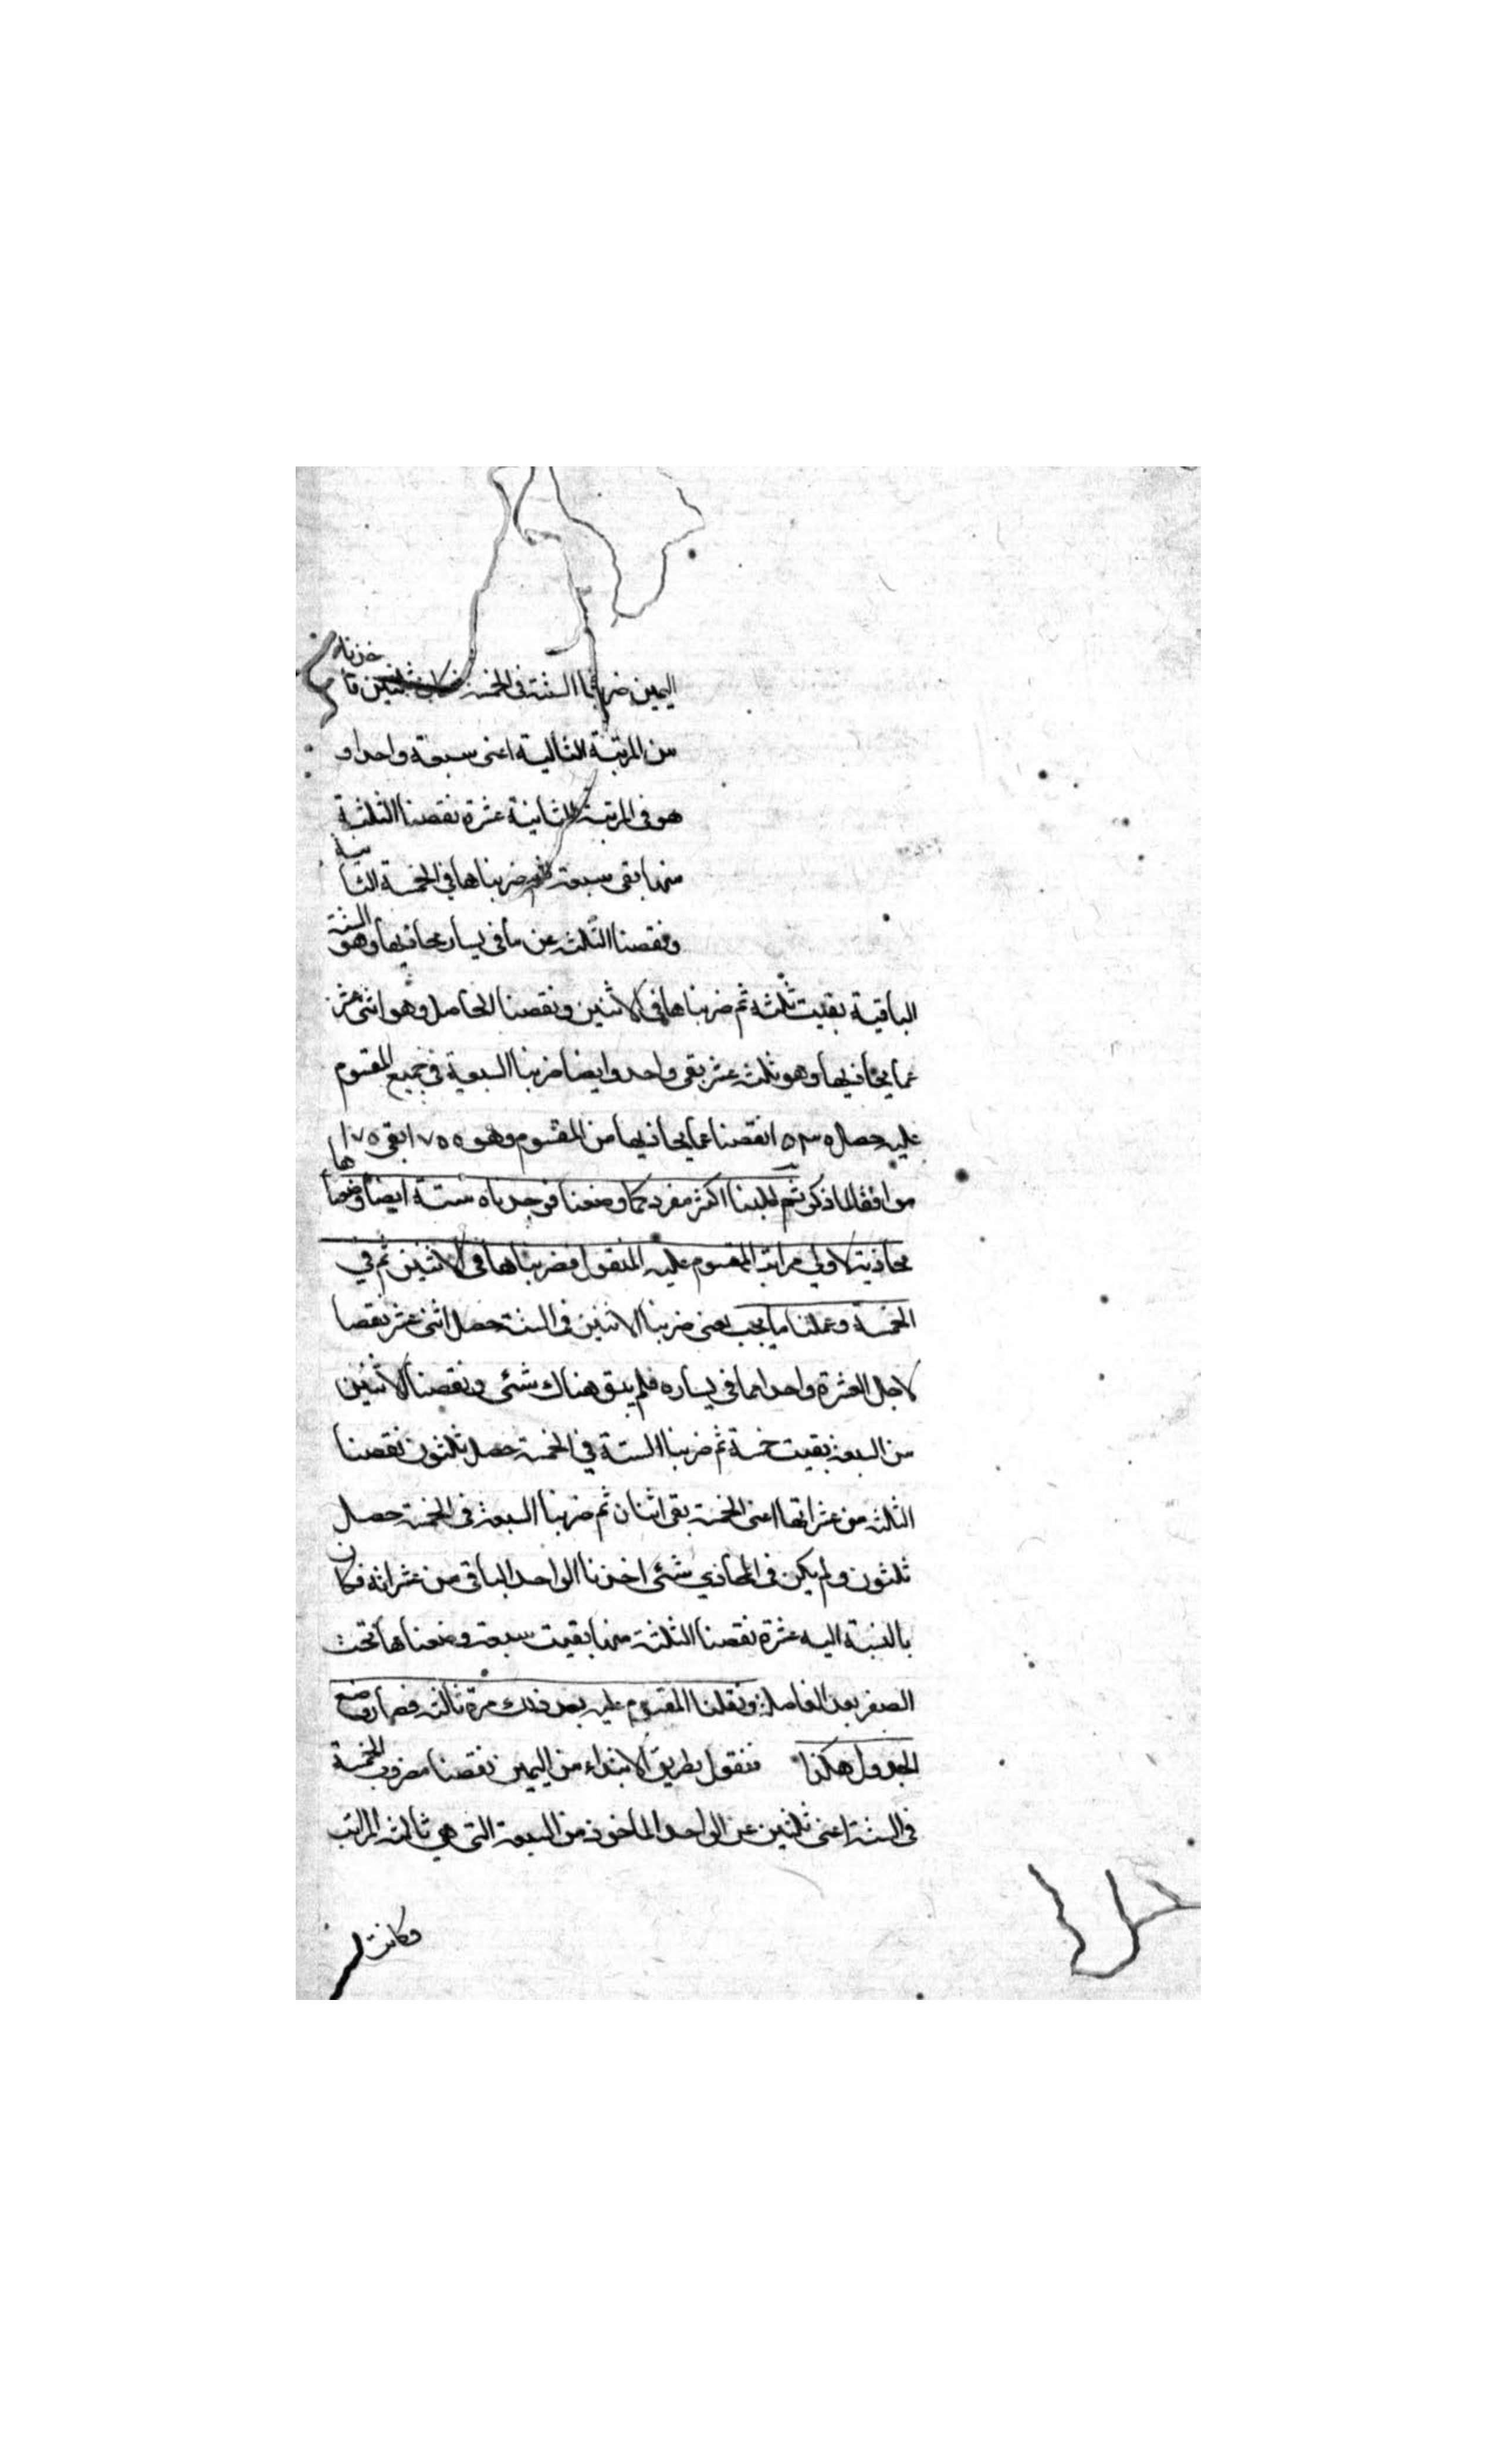 اليمين ضربنا الستة فى الخمسة ثلثين فاخذنا
من المرتبة التالية اعنى سبعة واحدا و
هو فى المرتبة الثانية عشرة نقصنا الثلثة
منها بقى سبعة ثم ضربناها فى الخمسة الثانية
ونقصنا الثلثة عن ما فى يسار محاذيها وهو الستة
الباقية بقيت ثلثة ثم ضربناها فى الاثنين ونقصنا الحاصل وهو اثنى عشر
عما يحاذيها وهو ثلثة عشر بقى واحد وايضا ضربنا السبعة فى جميع المقسوم
عليه حصل نقصنا عما يحاذيها من المقسوم وهو بقى
موافقا لما ذكر ثم طلبنا اكثر مفرد كما وضعنا فوجدناه ستة ايضا وضعناها
محاذية لاولى مراتب المقسوم عليه المنقول فضربناها فى الاثنين ثم فى
الخمسة وعملنا ما يجب يعنى ضربنا الاثنين فى الستة حصل اثنى عشر نقصنا
لاجل العشرة واحدا مما فى يساره فلم يبق هناك شئى ونقصنا الاثنين
من السبعة بقيت خمسة ثم ضربنا الستة فى الخمسة حصل ثلثون نقصنا
الثلثة من عشراتها اعنى الخمسة بقى اثنان ثم ضربنا السبعة فى الخمسة حصل
ثلثون ولم يكن فى المحاذي شئى اخذنا الواحد الباقى من عشراته فكان
بالنسبة اليه عشرة نقصنا الثلثة منها بقيت سبعة وضعناها تحت
الصفر بعد الفاصلة ونقلنا المقسوم عليه بعد ذلك مرة ثالثة فصار وضع
الجدول هكذا فنقول بطريق الابتداء من اليمين نقصنا مضروب الخمسة
فى الستة اعنى ثلثين عن الواحد الماخوذ من السبعة التى هى ثالثة المراتب
وكانت